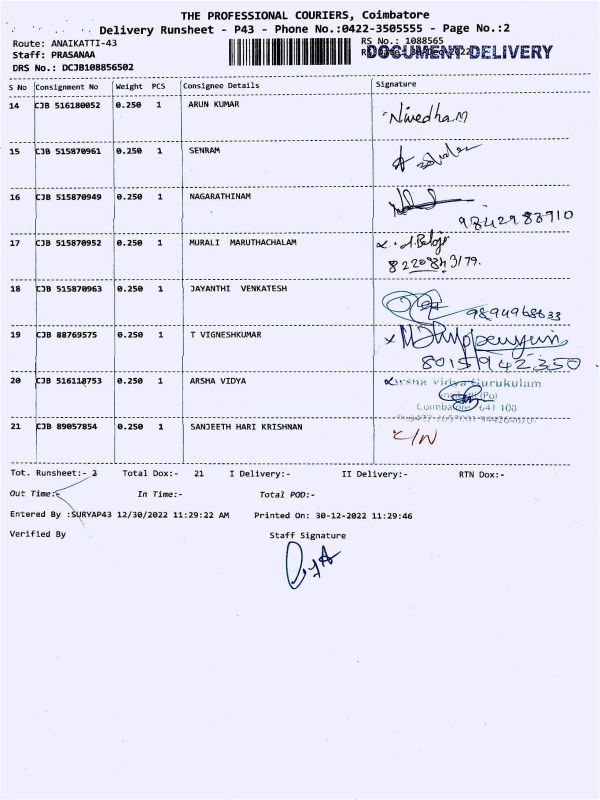 THE PROFESSIONAL COURIERS, Coimbatore
Delivery Runsheet - P43 - Phone No.:0422-3505555 - Page No.:2
Route: ANAIKATTI-43
RS No.: 1088565
Staff: PRASANAA
DOCUMENT DELIVERY
DRS No.: DCJB108856502
S No Consignment No Weight PCS Consignee Details Signature
14 CJB 516180052 0.250 1 ARUN KUMAR Nivedha M
15 CJB 515870961 0.250 1 SENRAM
16 CJB 515870949 0.250 1 NAGARATHINAM
9842983910
17 CJB 515870952 0.250 1 MURALI MARUTHACHALAM
18 CJB 515870963 0.250 1 JAYANTHI VENKATESH
9894968633
19 CJB 88769575 0.250 1 T VIGNESHKUMAR
8015942350
20 CJB 516118753 0.250 1 ARSHA VIDYA Arsha Vidya Gurukulam
(Po)
Coimbatore 641 108
21 CJB 89057854 0.250 1 SANJEETH HARI KRISHNAN C/N
Tot. Runsheet:- 2 Total Dox:- 21 I Delivery:- II Delivery:- RTN Dox:-
Out Time:- In Time:- Total POD:-
Entered By :SURYAP43 12/30/2022 11:29:22 AM Printed On: 30-12-2022 11:29:46
Verified By Staff Signature